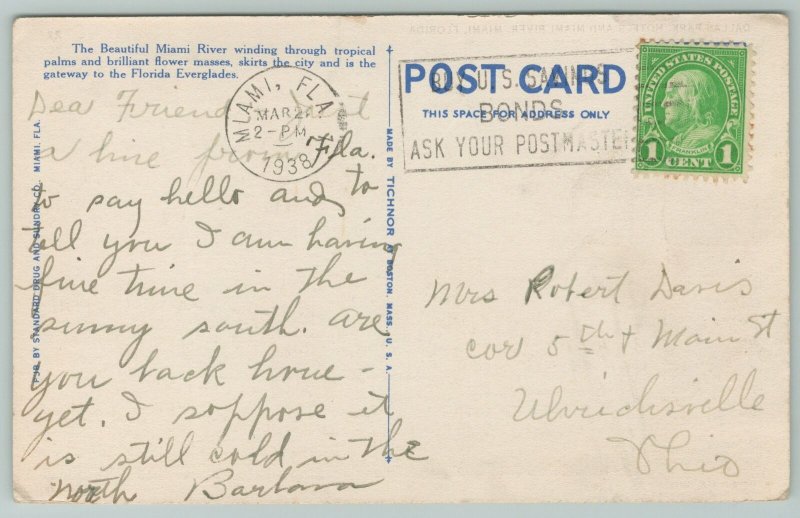 The Beautiful Miami River winding through tropical
palms and brilliant flower masses, skirts the city and is the
gateway to the Florida Everglades.
Dear Friend Just
a line from Fla.
to say hello and to
tell you I am having
fine time in the
sunny south. are
you back home -
yet. I suppose it
is still cold in the
north Barbara
PUB. BY STANDARD DRUG AND SUNDRY CO. MIAMI, FLA.
MADE BY TICHNOR BOSTON, MASS., U. S. A.
MIAMI, FLA.
MAR 2
2-PM
1938
POST CARD
THIS SPACE FOR ADDRESS ONLY
BUY U.S. SAVINGS
BONDS
ASK YOUR POSTMASTER
UNITED STATES POSTAGE
FRANKLIN
1 CENT 1
Mrs Robert Davis
cor 5th + Main St
Uhrichsville
Ohio